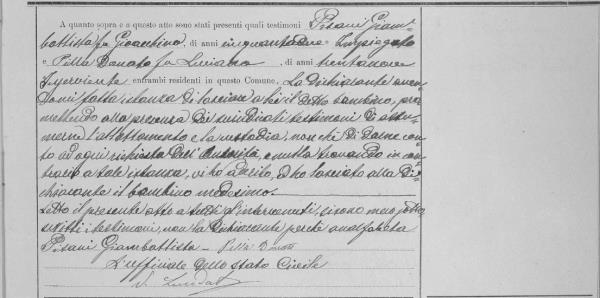 A quanto sopra e a questo atto sono stati presenti quali testimoni Pisani Giam-
battista fu Gioachino, di anni cinquantadue Impiegato
e Pillà Donato fu Luciano, di anni trentanove
Inserviente entrambi residenti in questo Comune. La dichiarante aven-
domi fatta istanza di lasciare a lei il detto bambino, pro-
mettendo alla presenza dei suindicati testimoni di assu-
merne l'allattamento e la custodia, non che di darne con-
to ad ogni richiesta dell'Autorità, e nulla trovando in con-
trario a tale istanza, vi ho aderito, ed ho lasciato alla di-
chiarante il bambino medesimo.
Letto il presente atto a tutti gl'intervenuti, si sono meco sotto-
scritti i testimoni, non la dichiarante perché analfabeta
Pisani Giambattista - Pillà Donato
L'uffiziale dello stato Civile